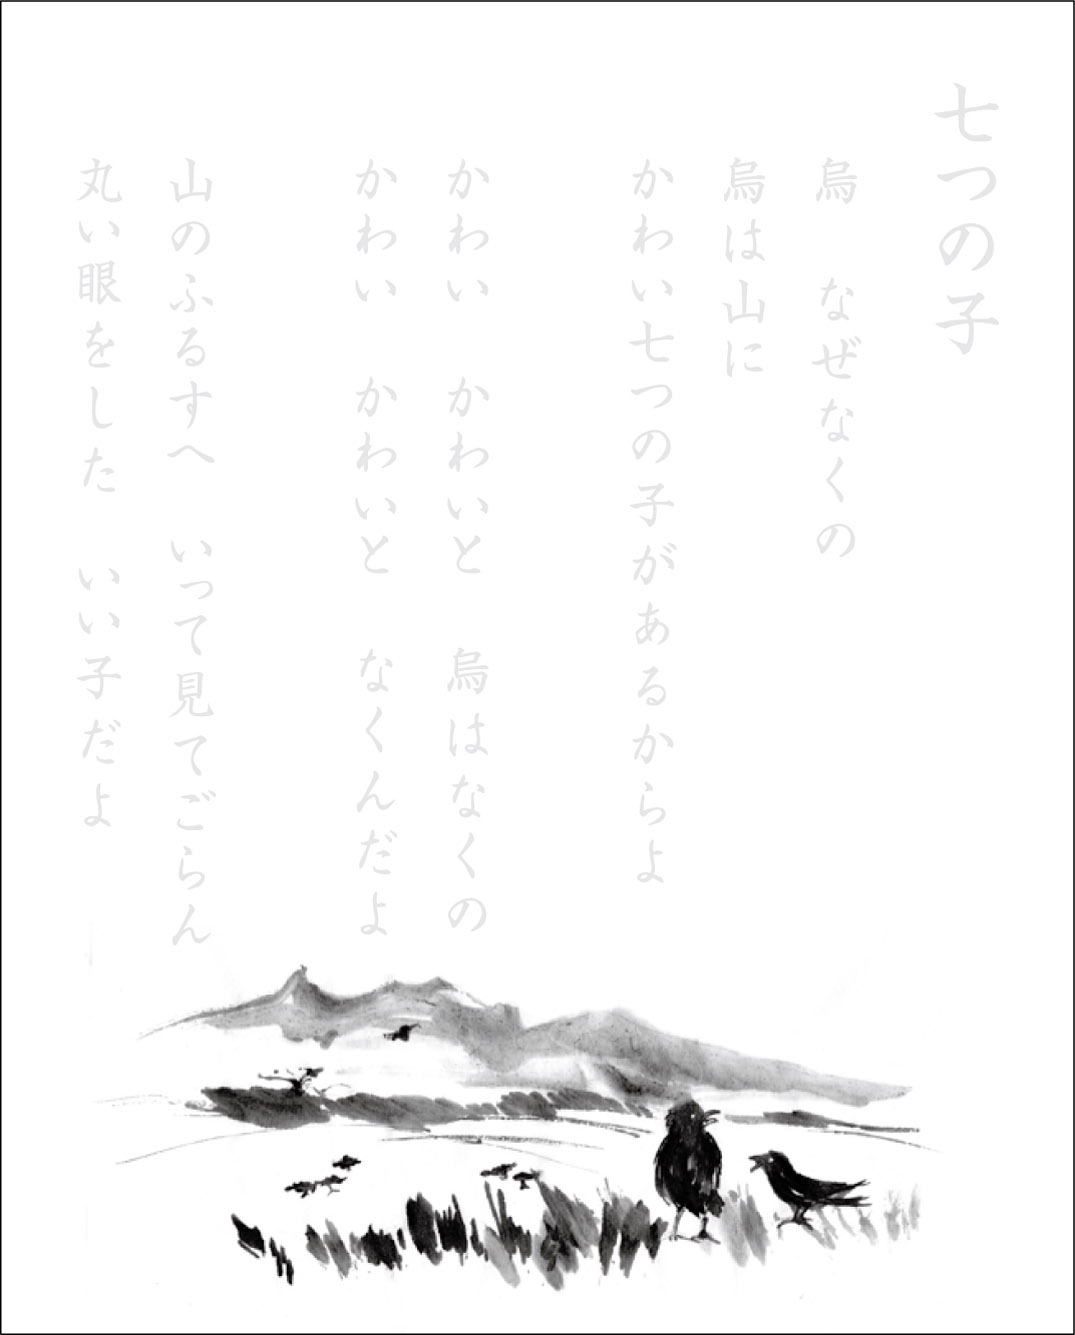 七つの子
烏　なぜなくの
烏は山に
かわい七つの子があるからよ
かわい　かわいと　烏はなくの
かわい　かわいと　なくんだよ
山のふるすへ　いって見てごらん
丸い眼をした　いい子だよ